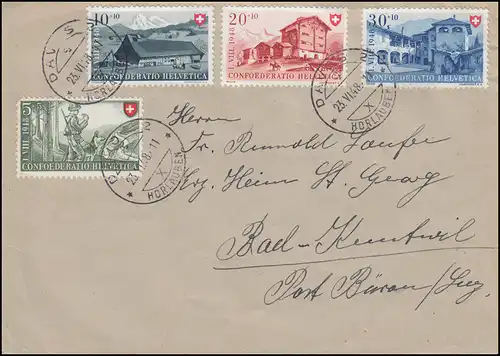 10+10
CONFOEDERATIO HELVETICA
I.VIII.1948
20+10
CONFOEDERATIO HELVETICA
I.VIII.1948
30+10
CONFOEDERATIO HELVETICA
5
I.VIII.1948
CONFOEDERATIO HELVETICA
DAVOS 2
23.VI.48.-11
X
HORLAUBEN
DAVOS 2
23.VI.48.
X
HORLAUBEN
HORLAUBEN
Herren
Fr. Reinwold Laufer
Heim St. Georg
Bad-Knutwil
Post Büron/Luz.